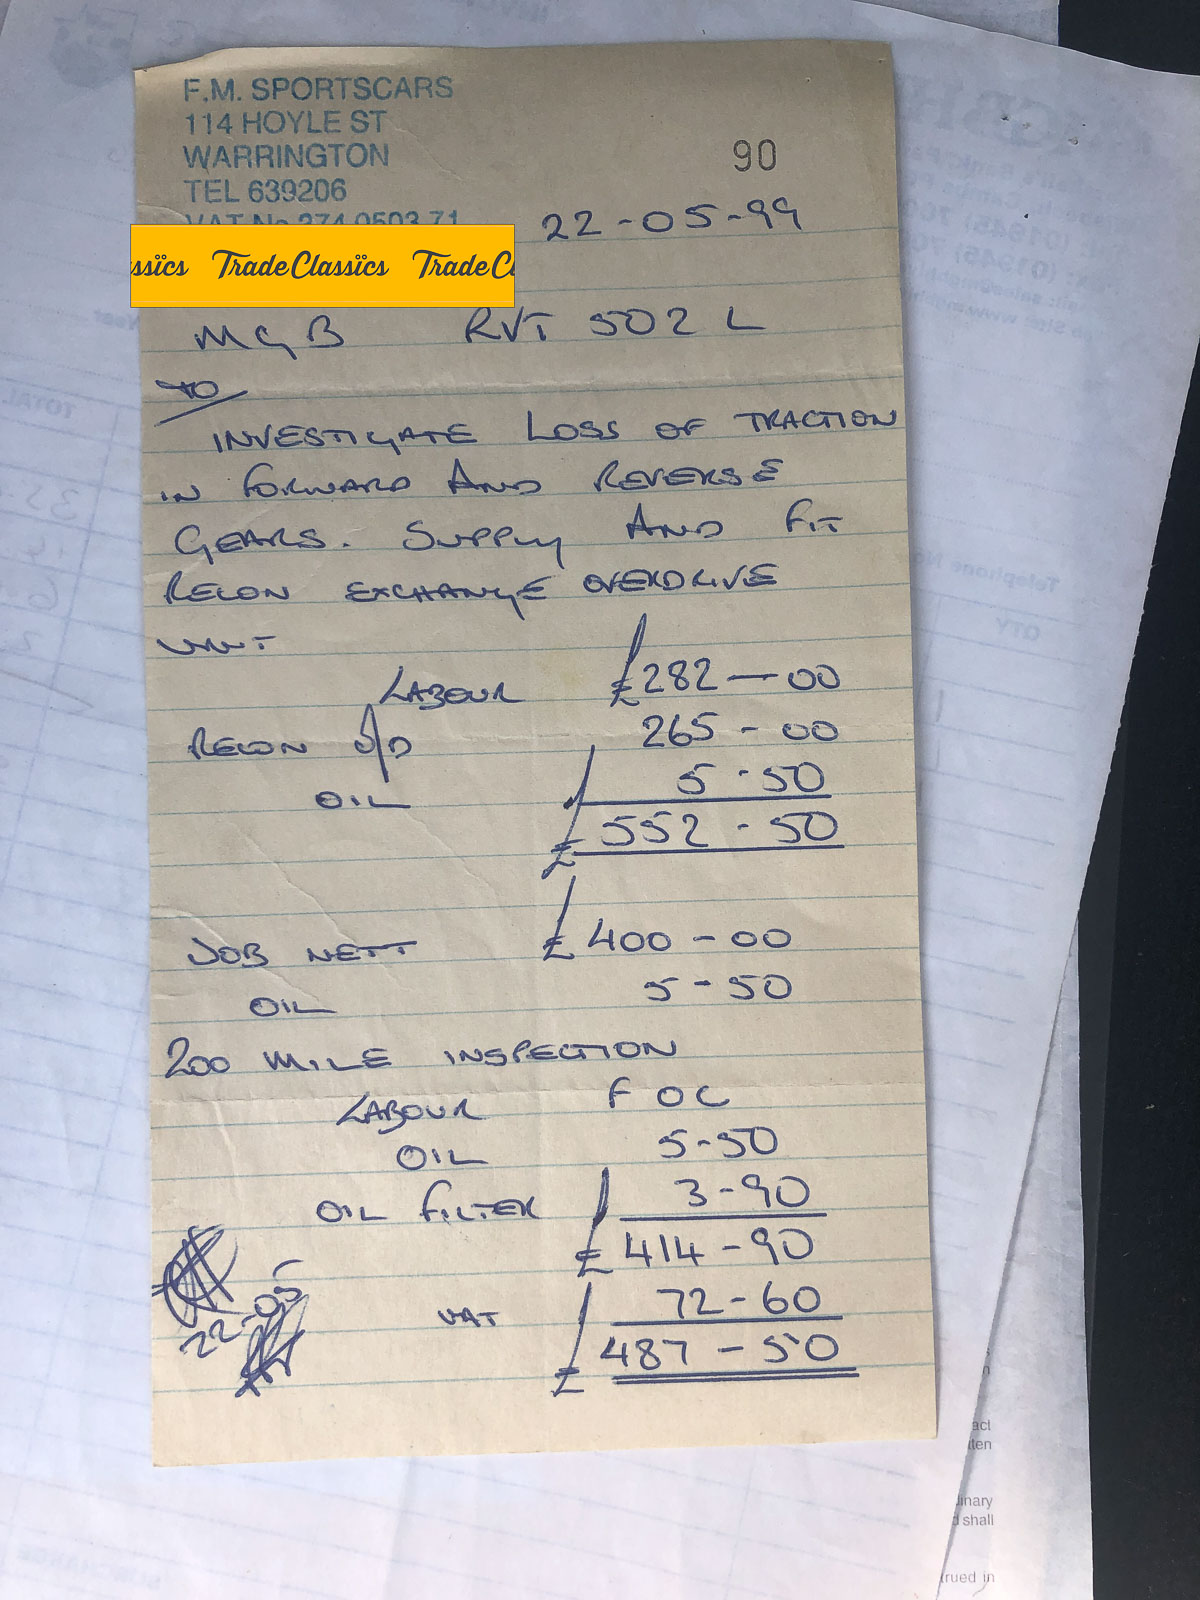 F.M. SPORTSCARS
114 HOYLE ST
WARRINGTON
TEL 639206
90
VAT No 274 0503 71
22-05-99
ssics TradeClassics TradeC
MGB RVT 502 L
TO
INVESTIGATE LOSS OF TRACTION
IN FORWARD AND REVERSE
GEARS. SUPPLY AND FIT
RECON EXCHANGE OVERDRIVE
UNIT
LABOUR £282-00
RECON O/D 265-00
OIL 5-50
£552-50
JOB NETT £400-00
OIL 5-50
200 MILE INSPECTION
LABOUR FOC
OIL 5-50
OIL FILTER 3-90
£414-90
VAT 72-60
£487-50
22-05
TOTAL
Telephone No
QTY
SURCHARGE
act
ten
inary
shall
rued in